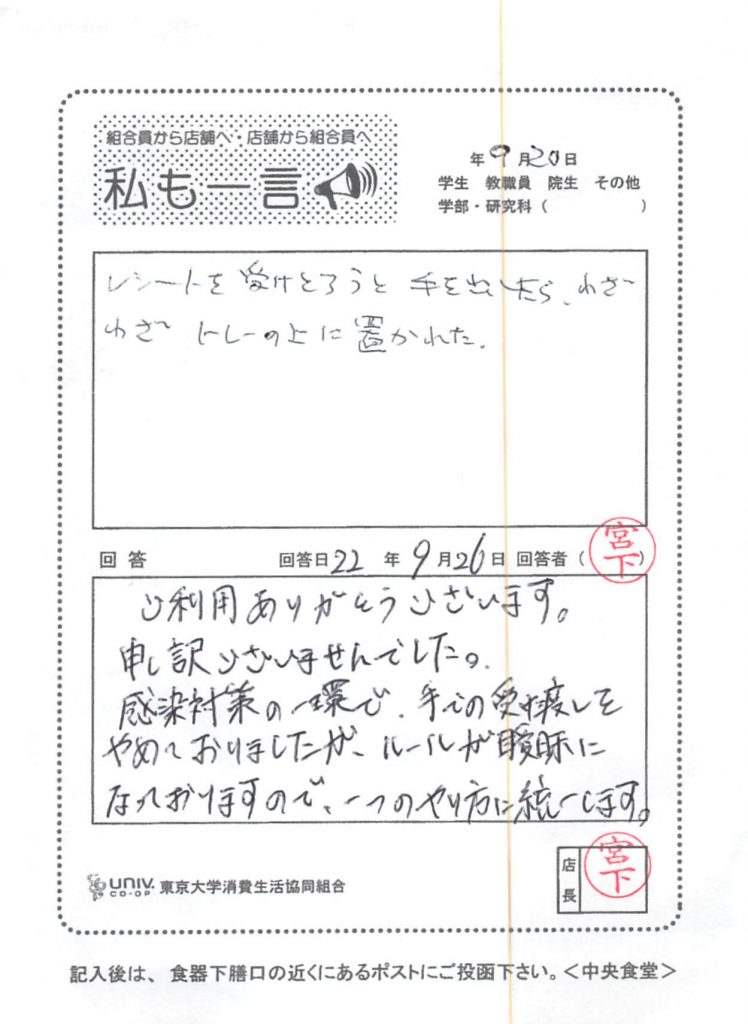 組合員から店舗へ・店舗から組合員へ
私も一言
年9月20日
学生 教職員 院生 その他
学部・研究科（ ）
レシートを受けとろうと手を出したら、わざ
わざトレーの上に置かれた。
回答 回答日22年9月26日 回答者（宮下）
ご利用ありがとうございます。
申し訳ございませんでした。
感染対策の一環で、手での受け渡しを
やめておりましたが、ルールが曖昧に
なっておりますので、一つのやり方に統一します。
UNIV. CO-OP 東京大学消費生活協同組合
店長 宮下
記入後は、食器下膳口の近くにあるポストにご投函下さい。＜中央食堂＞